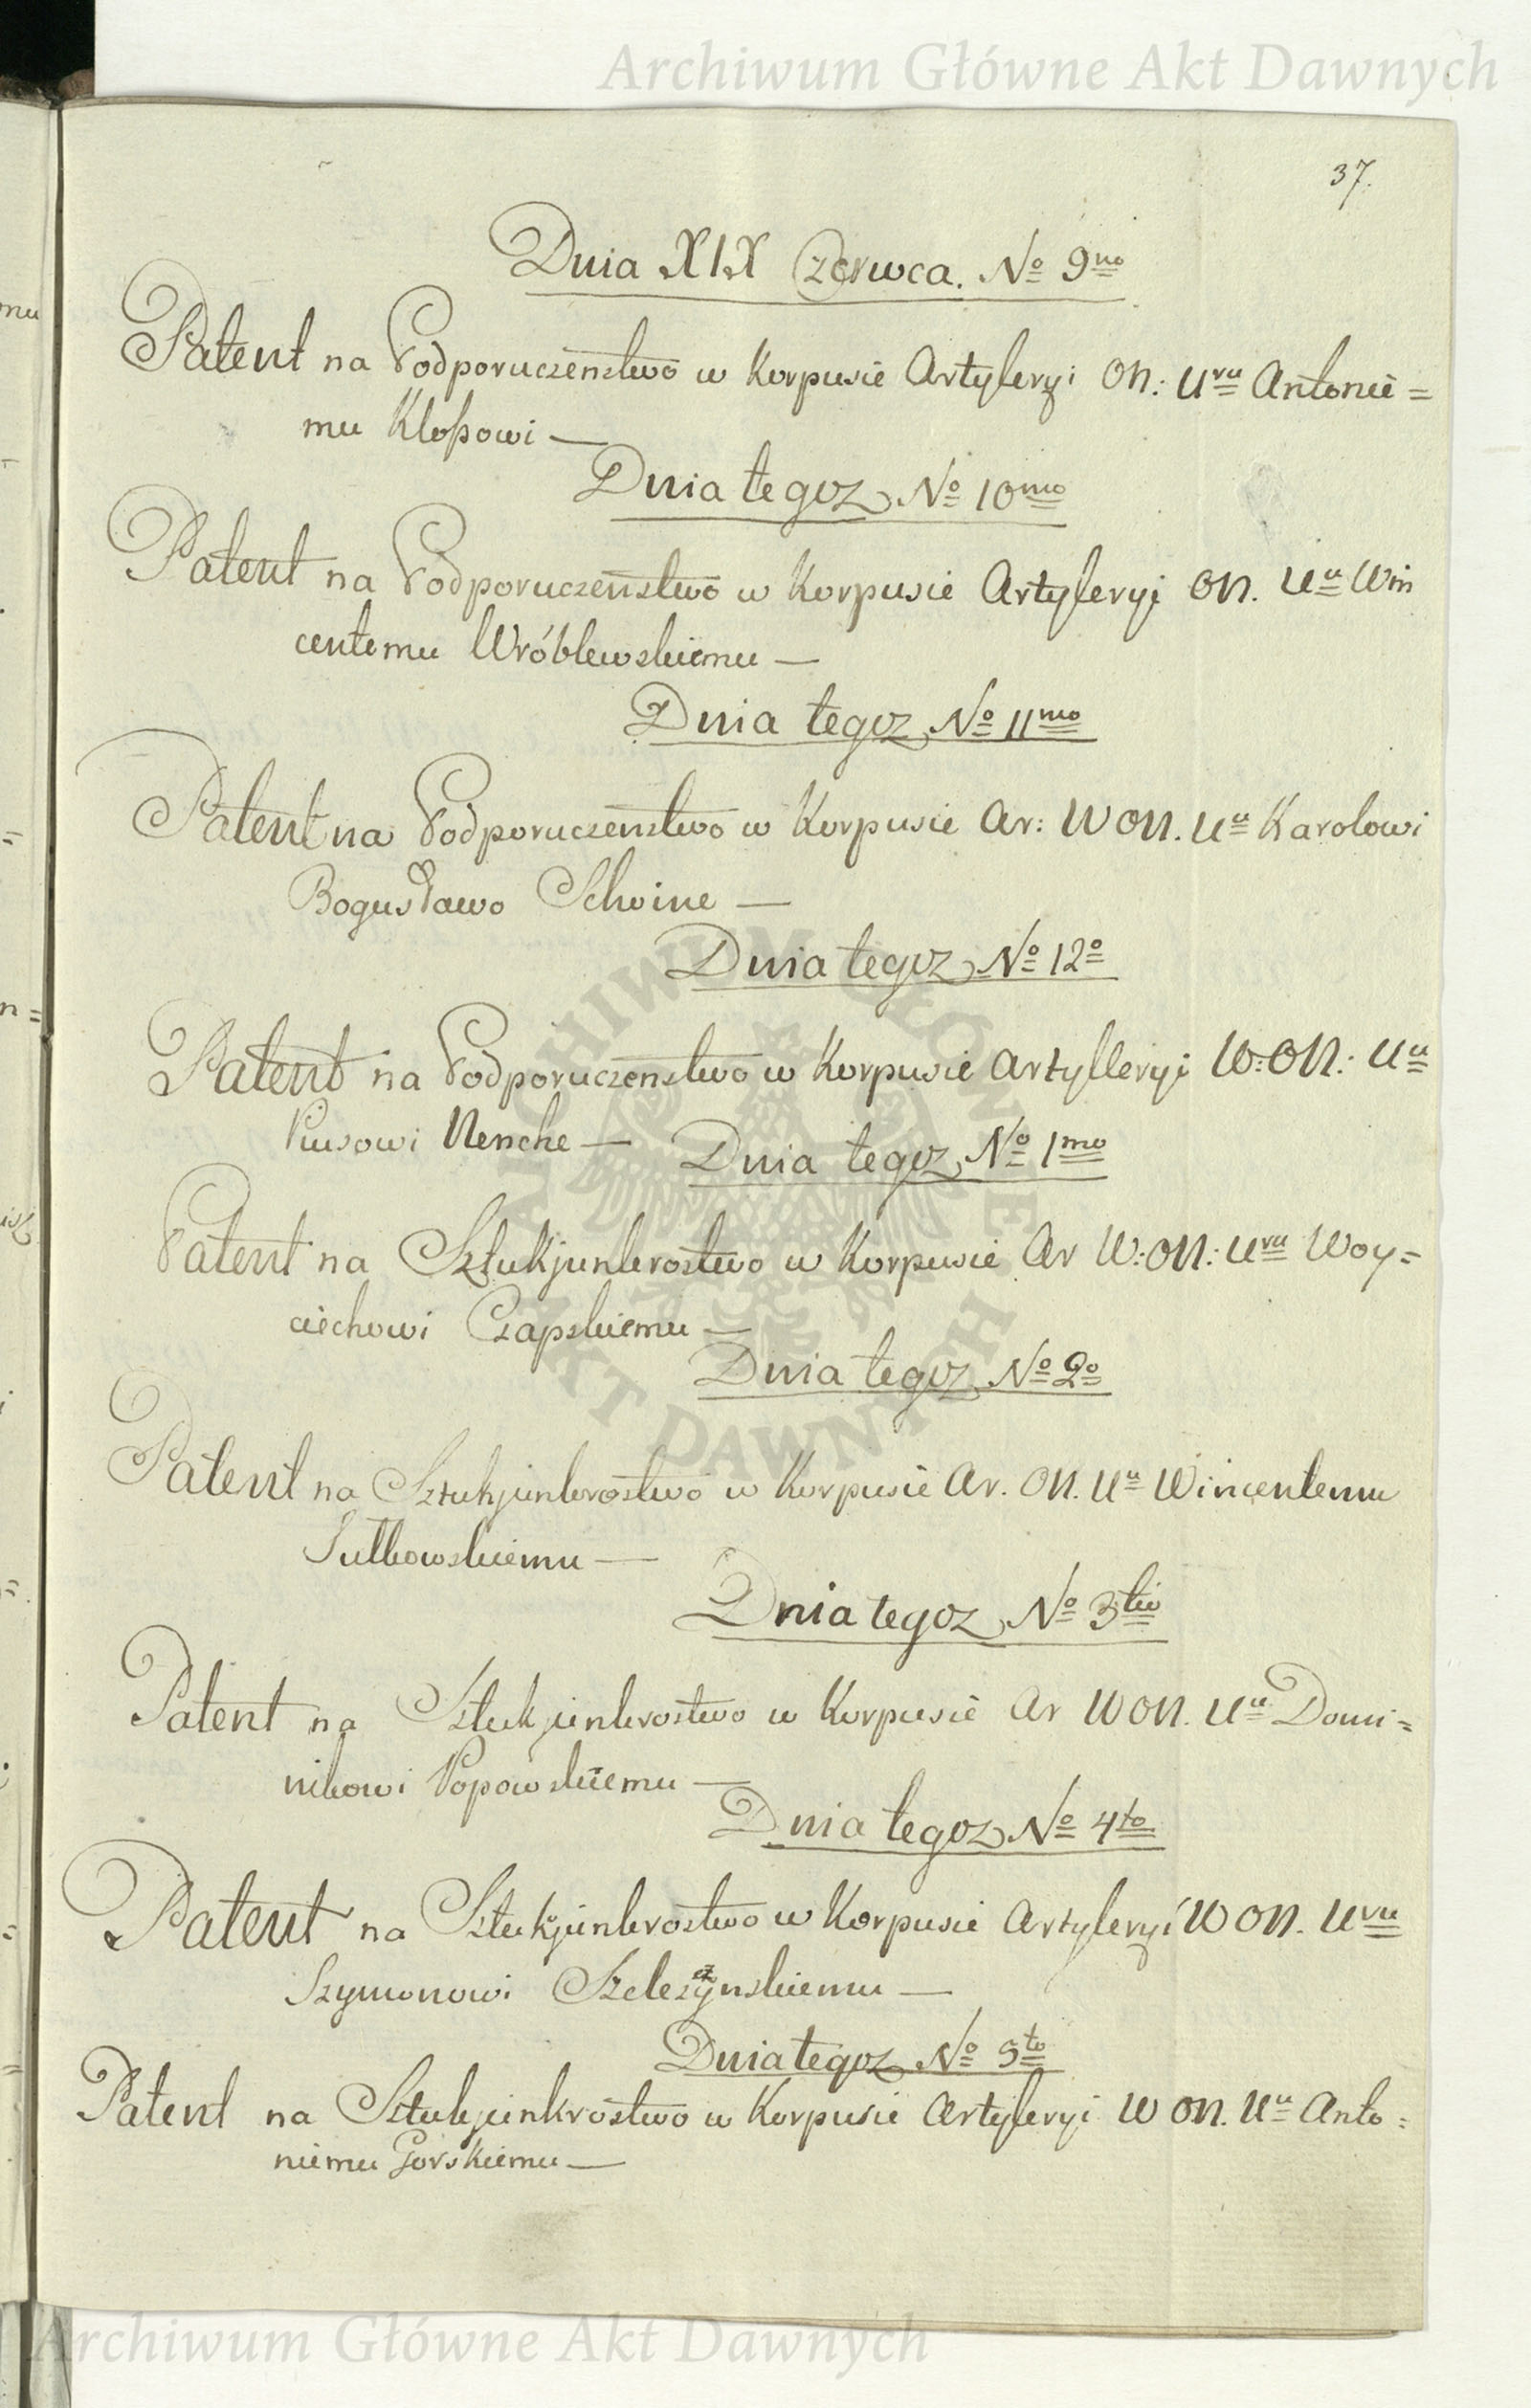 Archiwum Główne Akt Dawnych
37.
Dnia XIX Czerwca. No 9no
Patent na Podporuczenstwo w Korpusie Artyleryi ON: Uru Antonie=
mu Kloßowi —
Dnia tegoz No 10mo
Patent na Podporuczenstwo w Korpusie Artyleryi ON. Uu Win
centemu Wróblewskiemu —
Dnia tegoz No 11mo
Patent na Podporuczenstwo w Korpusie Ar: W ON. Uu Karolowi
Bogusławo Schoine —
Dnia tegoz No 12o
Patent na Podporuczenstwo w Korpusie Artylleryi W: ON: Uu
Piusowi Nenche — Dnia tegoz No 1mo
Patent na Sztukjunkrostwo w Korpusie Ar W: ON: Uru Woy=
ciechowi Czapskiemu —
Dnia tegoz No 2o
Patent na Sztukjunkrostwo w Korpusie Ar. ON. Uu Wincentemu
Sutkowskiemu —
Dnia tegoz No 3tio
Patent na Sztukjunkrostwo w Korpusie Ar W ON. Uu Domi=
nikowi Popowskiemu —
Dnia tegoz No 4to
Patent na Sztukjunkrostwo w Korpusie Artyleryi W ON. Uru
Szymonowi —
Dnia tegoz No 5to
Patent na Sztukjunkrostwo w Korpusie Artyleryi W ON. Uu Anto=
niemu Gorskiemu —
ARCHIWUM GŁÓWNE AKT DAWNYCH
Archiwum Główne Akt Dawnych